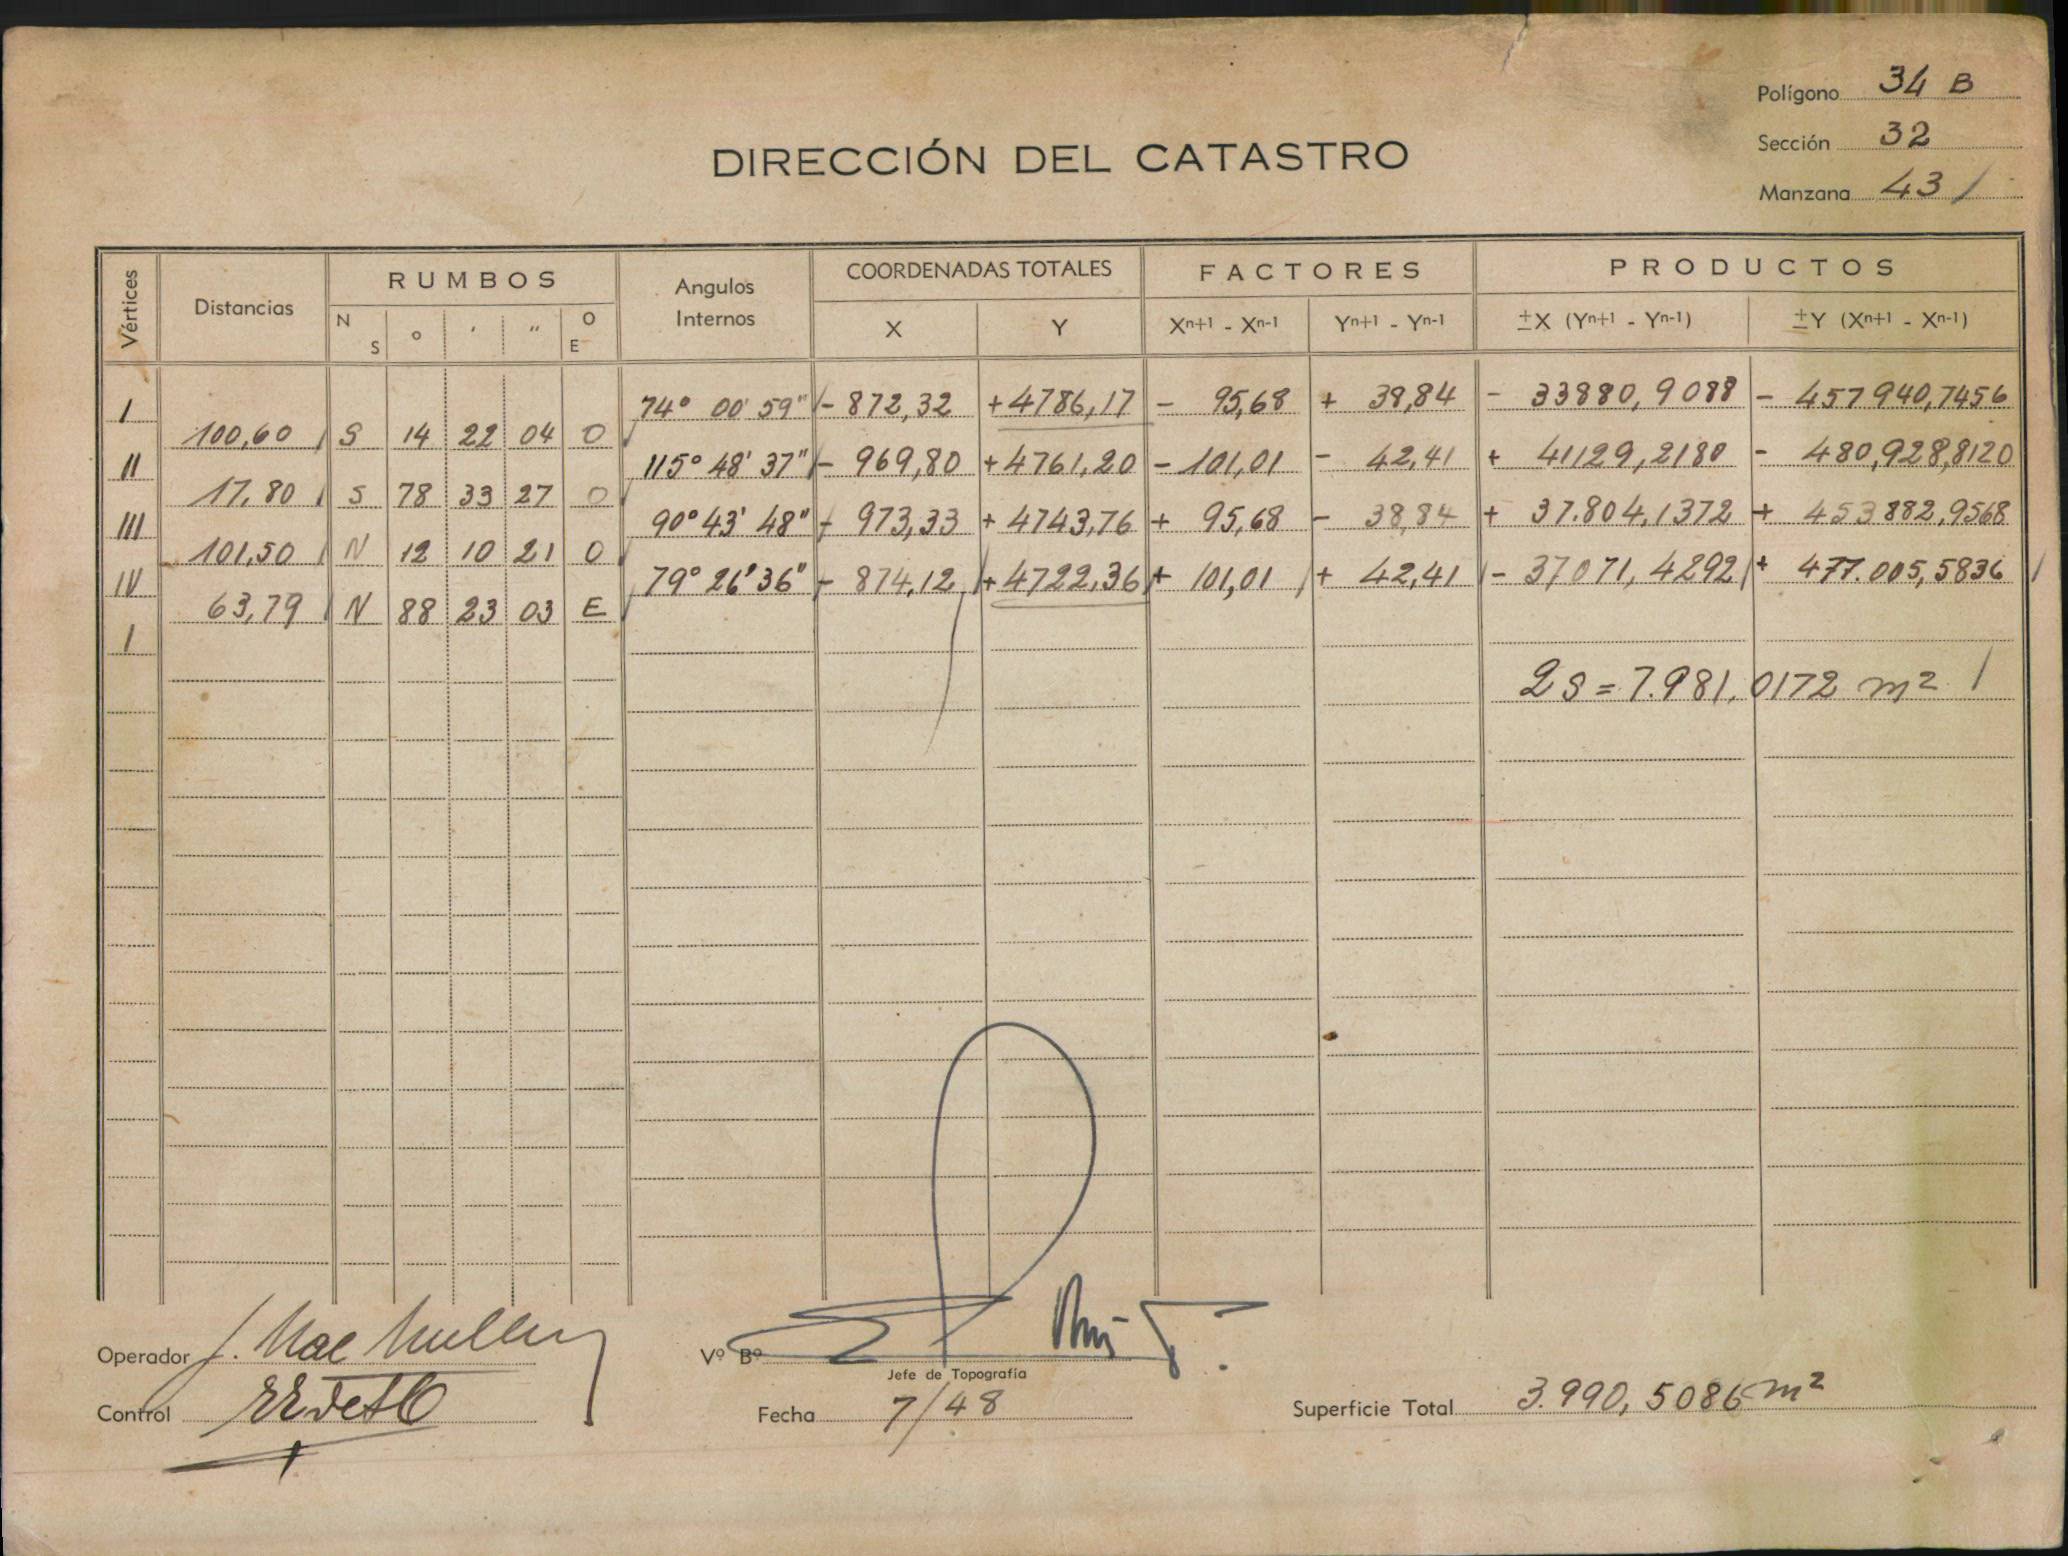 Polígono 34 B
Sección 32
Manzana 43 /
DIRECCIÓN DEL CATASTRO
Vértices Distancias RUMBOS Angulos Internos COORDENADAS TOTALES FACTORES PRODUCTOS
N S ° ′ ″ O E X Y Xn+1 - Xn-1 Yn+1 - Yn-1 ±X (Yn+1 - Yn-1) ±Y (Xn+1 - Xn-1)
I 74° 00' 59" - 872,32 +4786,17 - 95,68 + 38,84 - 33880,9088 - 457940,7456
100,60 S 14 22 04 O
II 115° 48' 37" - 969,80 +4761,20 - 101,01 - 42,41 + 41129,2180 - 480,928,8120
17,80 S 78 33 27 O
III 90° 43' 48" - 973,33 + 4743,76 + 95,68 - 38,84 + 37.804,1372 + 453882,9568
101,50 N 12 10 21 O
IV 79° 26' 36" - 874,12 +4722,36 + 101,01 + 42,41 - 37071,4292 + 477.005,5836
63,79 N 88 23 03 E
I
2S = 7.981,0172 m²
Operador J. Mac
Vº Bº
Jefe de Topografía
Control
Fecha 7/48
Superficie Total 3.990,5086 m²